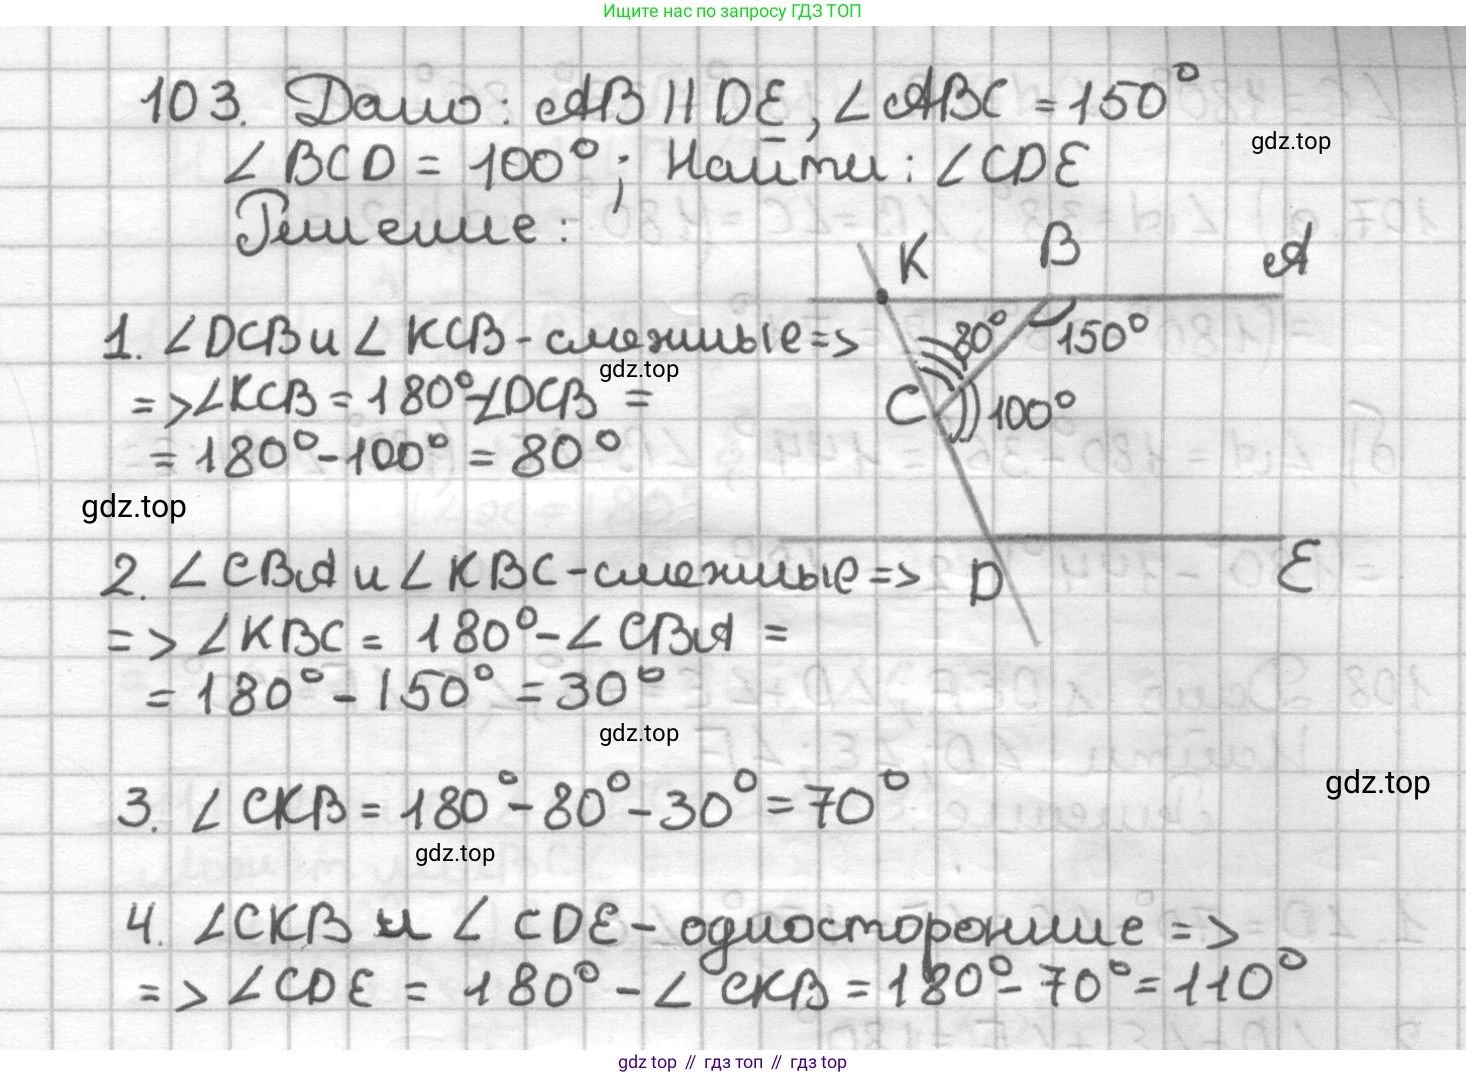 Ищите нас по запросу ГДЗ ТОП
103. Дано: AB || DE, ∠ABC = 150°
gdz.top
∠BCD = 100°; Найти: ∠CDE
Решение:
K B A
1. ∠DCB и ∠KCB - смежные =>
80° 150°
gdz.top
=> ∠KCB = 180° - ∠DCB =
C 100°
= 180° - 100° = 80°
gdz.top
2. ∠CBA и ∠KBC - смежные =>
D E
=> ∠KBC = 180° - ∠CBA =
= 180° - 150° = 30°
gdz.top
gdz.top
3. ∠CKB = 180° - 80° - 30° = 70°
gdz.top
4. ∠CKB и ∠CDE - односторонние =>
=> ∠CDE = 180° - ∠CKB = 180° - 70° = 110°
gdz top // гдз топ // гдз top